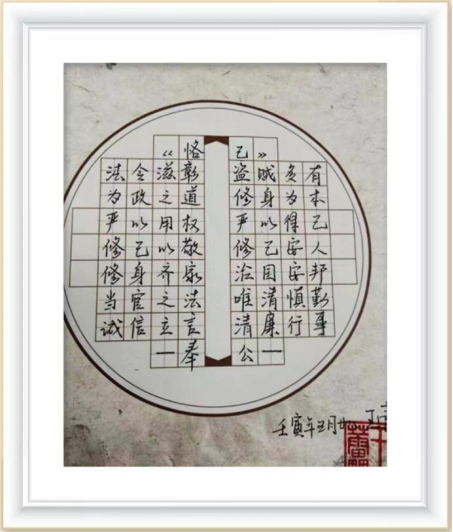 《恪己》
法令滋彰盗贼多有
为政之道修身为本
严以用权严以律己
修己以敬修己安人
修身齐家治国安邦
当官之法唯清慎勤
诚信立言清廉行事
一奉公一
壬寅年五月廿